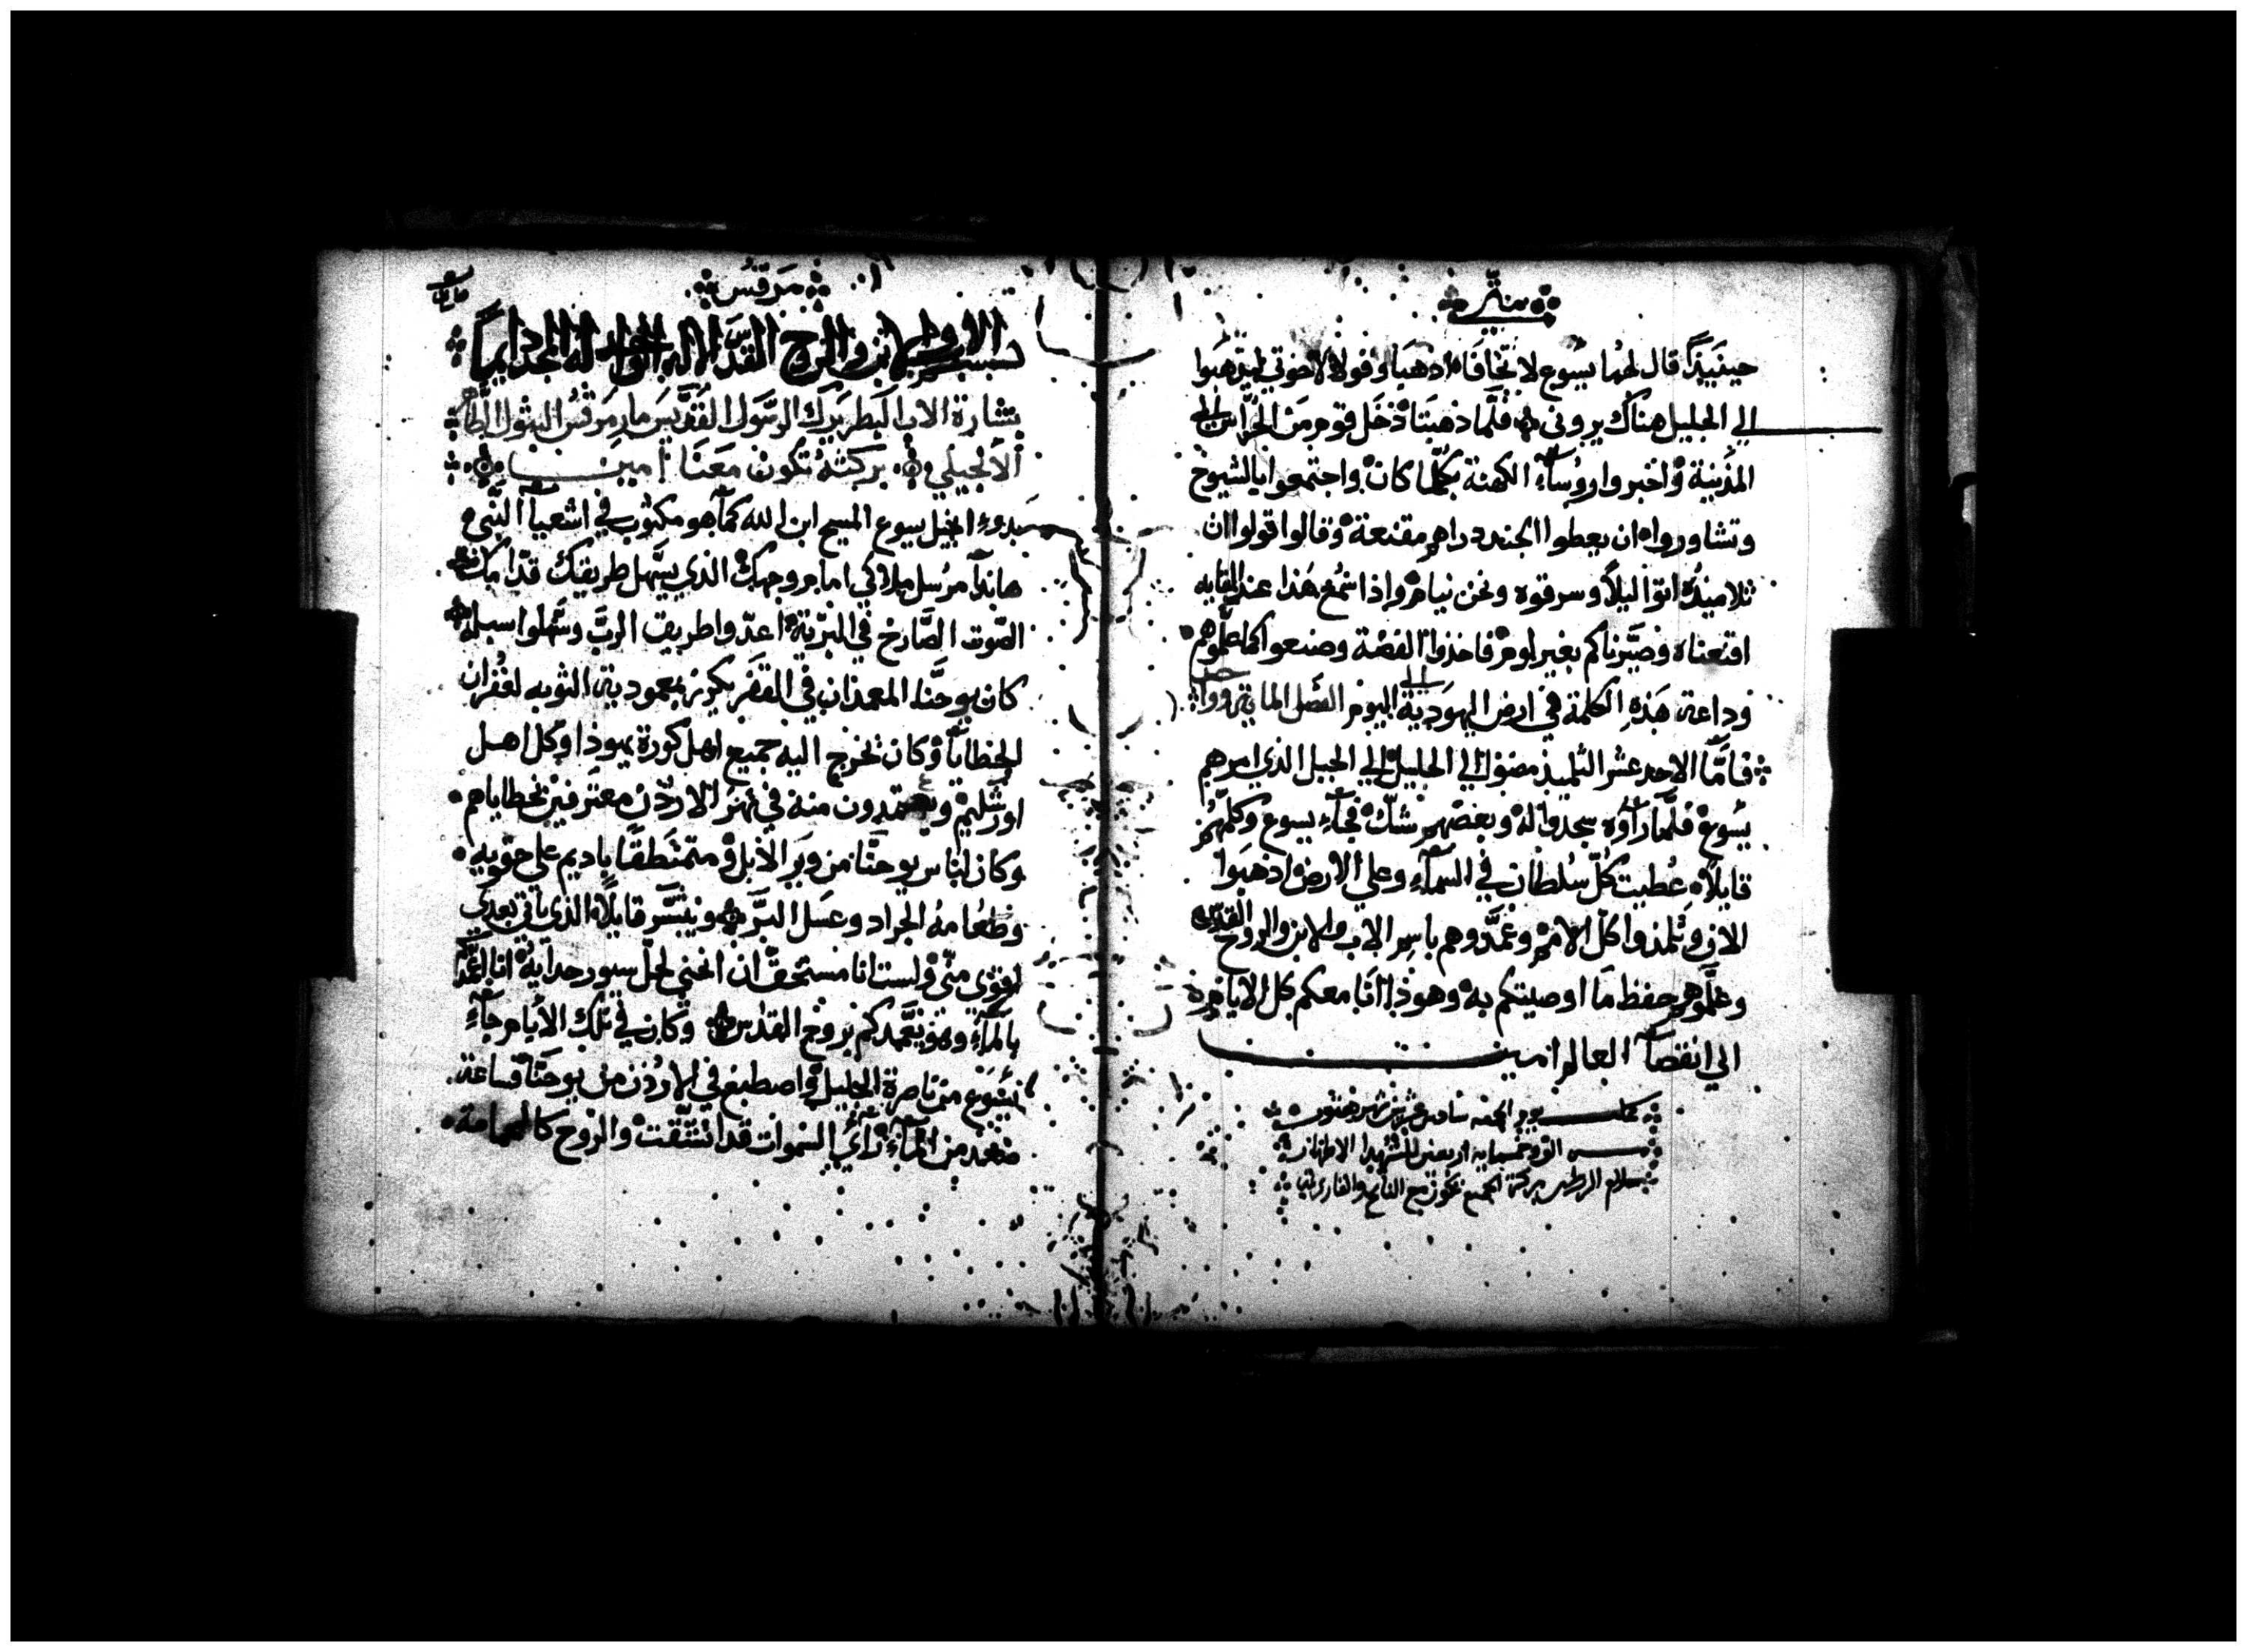 متى
حينيذ قال لهما يسوع لا تخافا اذهبا وقولا لاخوتي ليذهبوا
الي الجليل هناك يروني فلما ذهبتا دخل قوم من الحراس الي
المدينة واخبروا روسآء الكهنة بكلما كان واجتمعوا بالشيوخ
وتشاوروا ان يعطوا الجند دراهم مقنعة وقالوا قولوا ان
تلاميذه اتوا ليلًا وسرقوه ونحن نيام واذا سمع هذا عند
اقنعناه وصيرناكم بغير لوم فاخذوا الفضة وصنعوا كما علموهم
وذاعت هذه الكلمة في ارض اليهودية الي اليوم الفصل
فامّا الاحد عشر التلميذ مضوا الي الجليل الي الجبل الذي امرهم
يسوع فلما رآوه سجدوا له وبعضهم شك فجآء يسوع وكلمهم
قايلًا عُطيت كل سُلطان في السمآء وعلي الارض اذهبوا
الان وتلمذوا كل الامم وعمّدوهم باسم الاب والابن والروح القدس
وعلموهم حفظ ما اوصيتكم به وهوذا انا معكم كل الايام
الي انقضآ العالم امين
يوم الجمعه سادس عشرين شهر هتور
الف وخمسمايه اربعين للشهدا الاطهار
بسلام الرب بركة الجميع تكون مع الناسخ والقاري
مرقس
بسم الاب والابن والروح القدس الاله الواحد له المجد دايماً
بشارة الاب البطريرك الرسول القديس مار مرقس البتول الطاهر
الانجيلي بركته تكون معنا امين
بدوء انجيل يسوع المسيح ابن الله كمآ هو مكتوب في اشعيآ النبي
هانذا مرسل ملاكي امام وجهك الذي يسهل طريقك قدامك
الصوت الصارخ في البرية اعدّوا طريق الرب وسهلوا سبله
كان يوحنا المعمذان في القفر يكرز بمعمودية التوبه لغفران
الخطايا وكان تخرج اليه جميع اهل كورة يهوذا وكل اهل
اورشليم ويعتمدون منه في نهر الاردن معترفين بخطاياهم
وكان لباس يوحنا من وبر الابل ومتمنطقاً باديم علي حقويه
وطعامه الجراد وعسل البر ويبشر قايلًا الذي ياتي بعدي
اقوي مني ولست انا مستحق ان انحني لحل سيور حدايه انا اعمدكم
بالمآء وهو يعمدكم بروح القدس وكان في تلك الايام جآء
يسوع من ناصرة الجليل واصطبغ في الاردن من يوحنا فساعة
صعد من المآء رآي السموات قد انشقت والروح كالحمامة